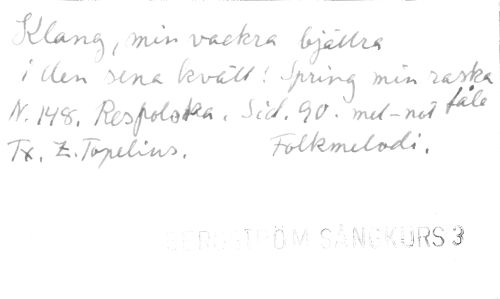 Klang, min vackra bjällra
i den sena kväll! Spring min raska
fåle
N. 148. Respolska. Sid. 90. mel-not
Tx. Z. Topelius. Folkmelodi.
BERGSTRÖM SÅNGKURS 3